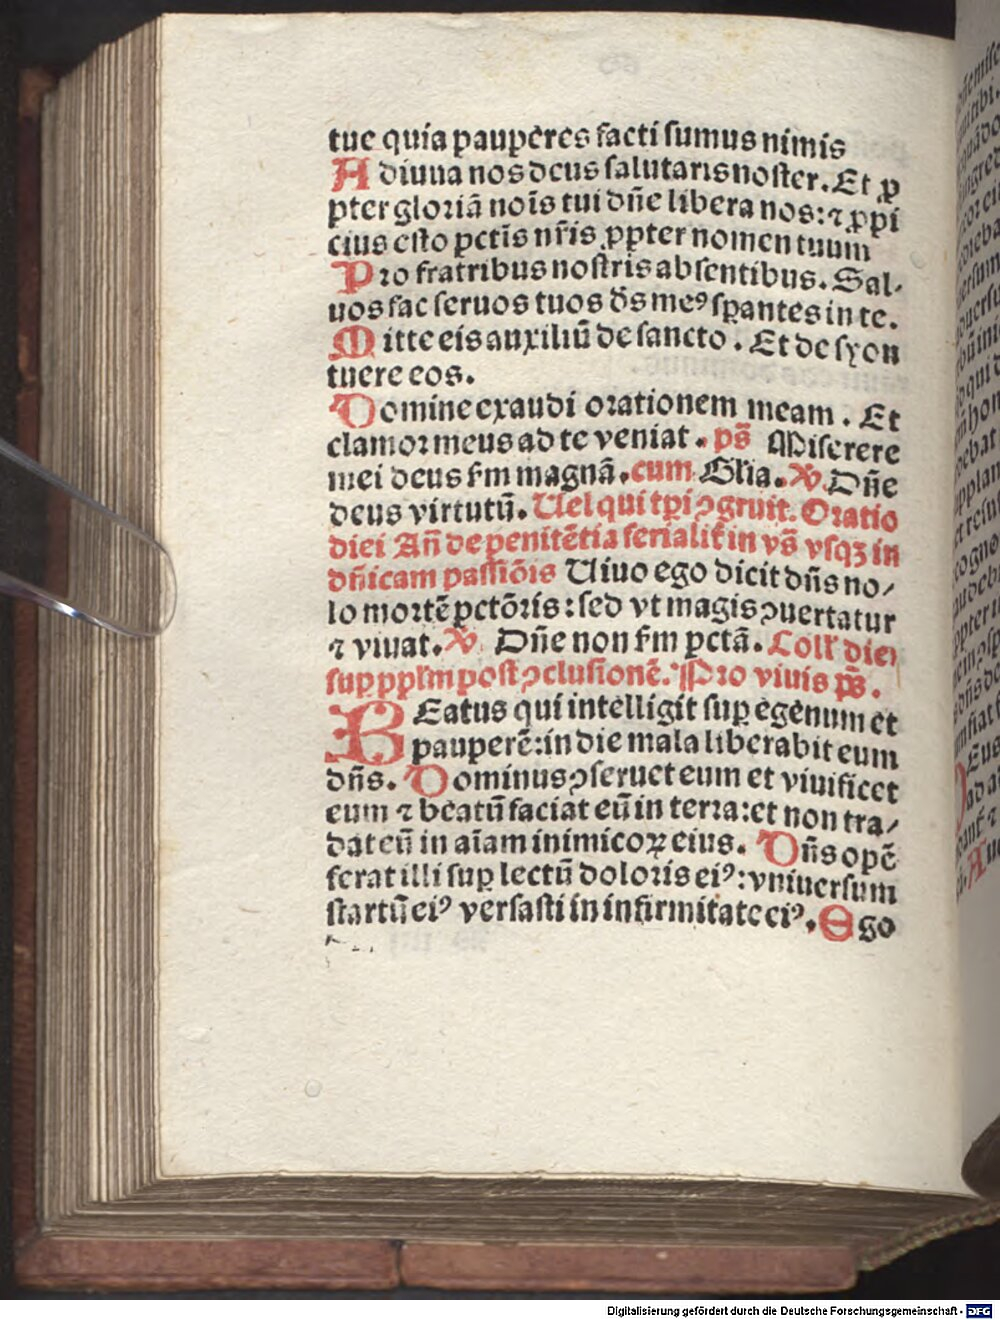 tue quia pauperes facti sumus nimis
Adiuua nos deus salutaris noster. Et ꝓ
pter gloriā nois̄ tui dn̄e libera nos: ⁊ ꝓpi
cius esto pctis̄ nr̄is ꝓpter nomen tuum
Pro fratribus nostris absentibus. Sal-
uos fac seruos tuos ds̄ meꝰ sꝑantes in te.
Mitte eis auxiliū de sancto. Et de syon
tuere eos.
Domine exaudi orationem meam. Et
clamor meus ad te veniat. ps̄ Miserere
mei deus sm̄ magnā. cum Glīa. ℣ Dn̄e
deus virtutū. Uel qui tꝑi ꝯgruit. Oratio
diei An̄ de penitētia ferialit̄ in vs̄ vsqꝫ in
dn̄icam passiōis Uiuo ego dicit dn̄s no-
lo mortē pctōris: sed vt magis ꝯuertatur
⁊ viuat. ℣ Dn̄e non sm̄ pctā. Coll̄ diei
suꝑ ppl̄m post ꝯclusionē. Pro viuis ps̄.
BEatus qui intelligit suꝑ egenum et
pauperē: in die mala liberabit eum
dn̄s. Dominus ꝯseruet eum et viuificet
eum ⁊ beatū faciat eū in terra: et non tra-
dat eū in aīam inimicoꝝ eius. Dn̄s opē
ferat illi suꝑ lectū doloris eiꝰ: vniuersum
startū eiꝰ versasti in infirmitate eiꝰ. Ego
Digitalisierung gefördert durch die Deutsche Forschungsgemeinschaft - DFG